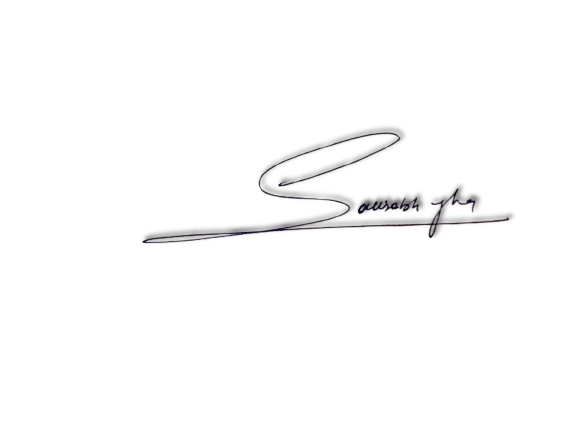 Saurabh Jha